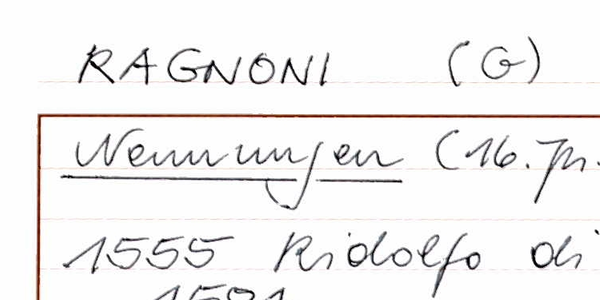 RAGNONI (G)
Nennungen (16. Jh.
1555 Ridolfo di
1591